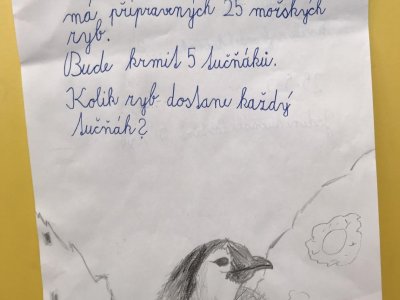 má připravených 25 mořských
ryb.
Bude krmit 5 tučňáků.
Kolik ryb dostane každý
tučňák?